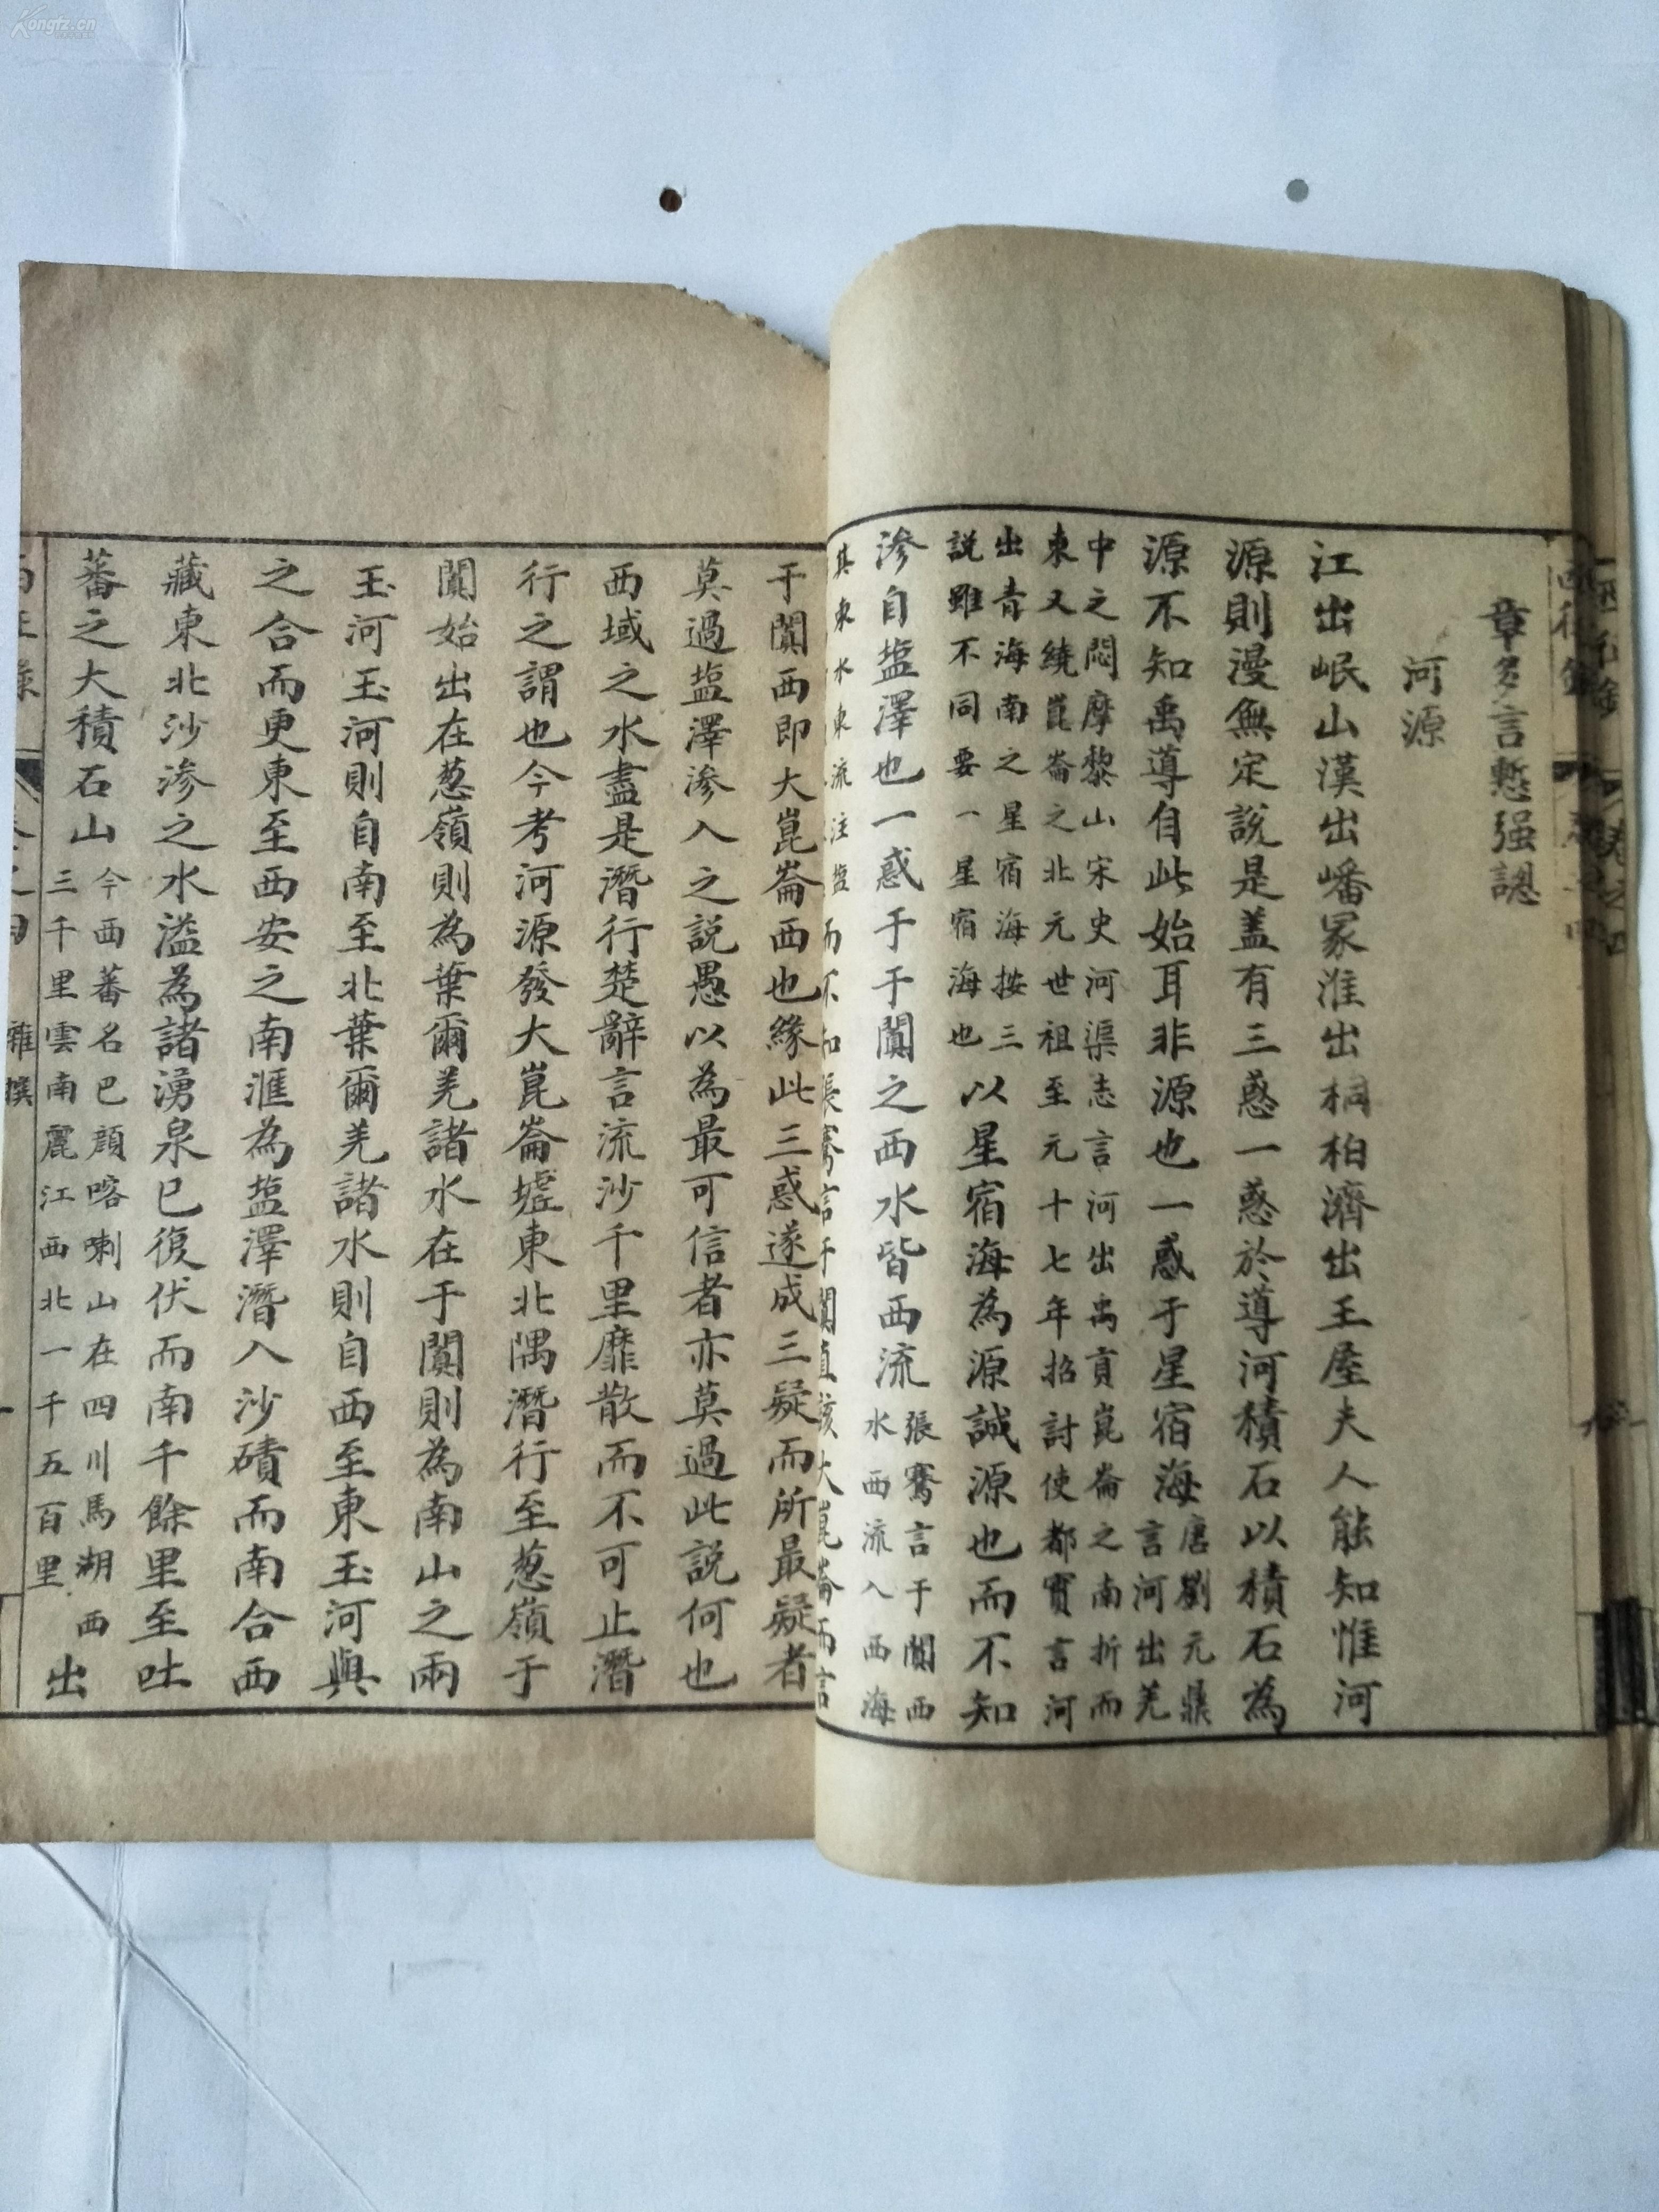 章多言慙强認
河源
江出岷山漢出嶓冢淮出桐柏濟出王屋夫人能知惟河
源則漫無定說是盖有三惑一惑於導河積石以積石為
源不知禹導自此始耳非源也一惑于星宿海唐劉元鼎言河出羌
中之悶摩黎山宋史河渠志言河出禹貢崑崙之南折而
東又繞崑崙之北元世祖至元十七年招討使都實言河
出青海南之星宿海按三
說雖不同要一星宿海也以星宿海為源誠源也而不知
滲自塩澤也一惑于于闐之西水皆西流張騫言于闐西水西流入西海
其東水東流注塩
于闐西即大崑崙西也緣此三惑遂成三疑而所最疑者
莫過塩澤滲入之說愚以為最可信者亦莫過此說何也
西域之水盡是潛行楚辭言流沙千里靡散而不可止潛
行之謂也今考河源發大崑崙墟東北隅潛行至葱嶺于
闐始出在葱嶺則為葉爾羌諸水在于闐則為南山之兩
玉河玉河則自南至北葉爾羌諸水則自西至東玉河與
之合而更東至西安之南滙為塩澤潛入沙磧而南合西
藏東北沙滲之水溢為諸湧泉已復伏而南千餘里至吐
蕃之大積石山今西蕃名巴顏喀喇山在四川馬湖西三千里雲南麗江西北一千五百里出
雜撰
Kongfz.cn